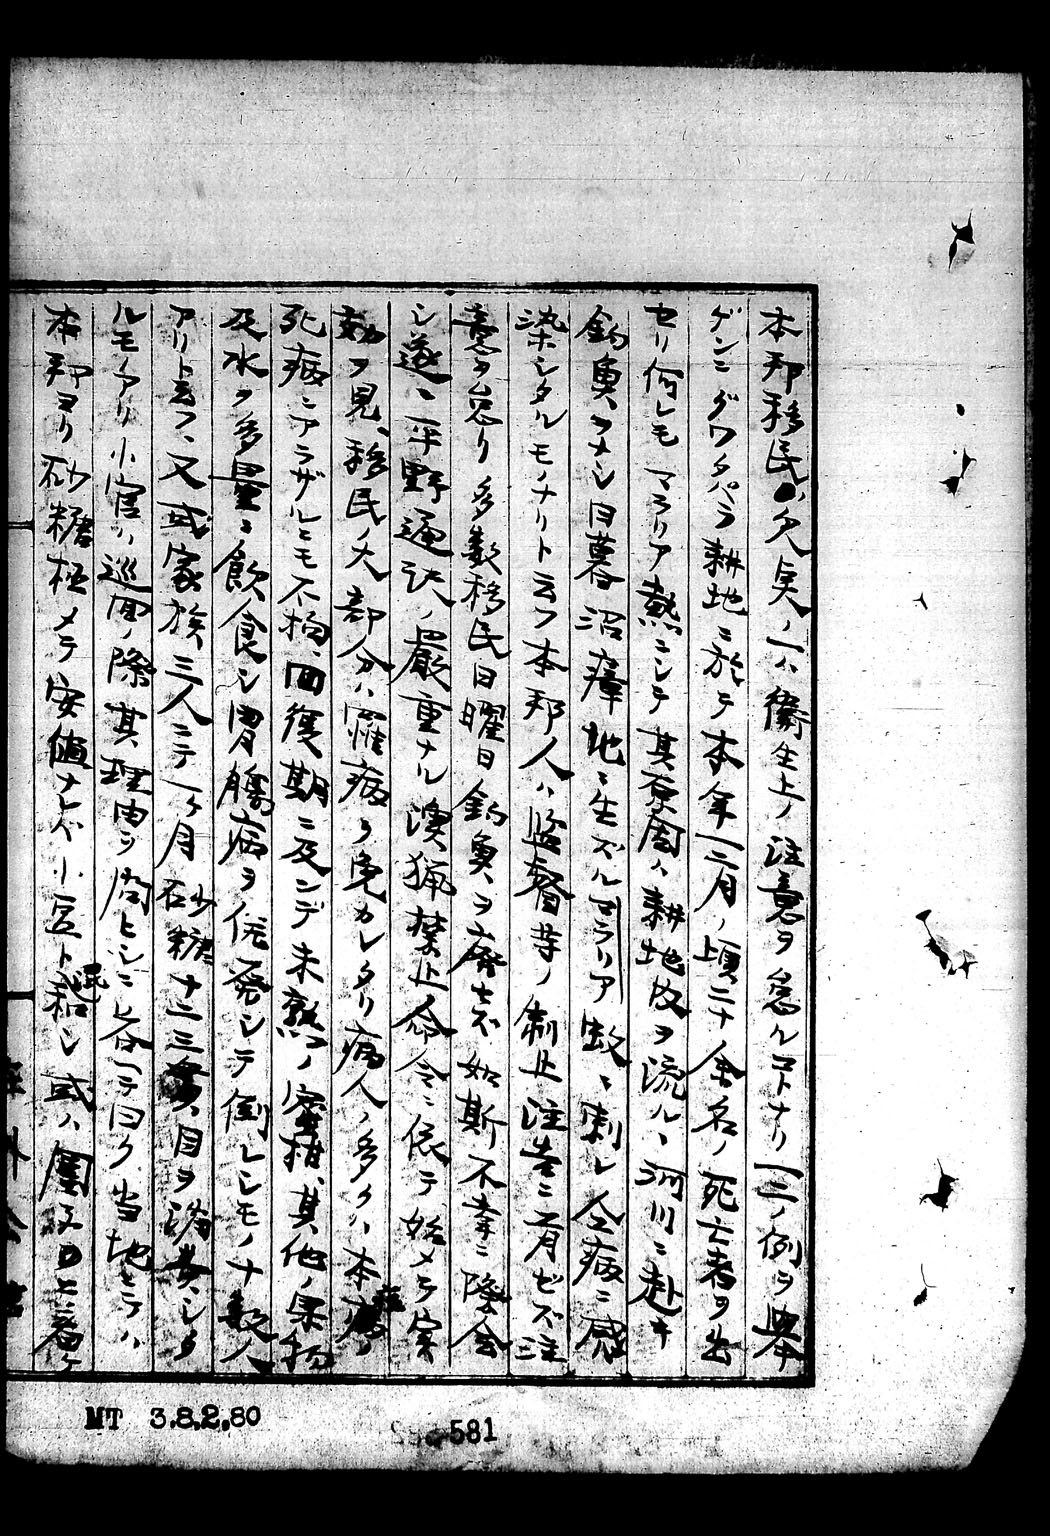 本邦移民ノ欠臭ノ一ハ衛生上ノ注意ヲ怠ルコトナリ一二ノ例ヲ挙
グンニグワタパラ耕地ニ於テ本年一二月ノ頃二十余名ノ死亡者ヲ出
セリ何レモマラリア熱ニシテ其原因ハ耕地内ヲ流ルヽ河川ニ赴キ
釣魚ヲナシ日暮沼瘴地ニ生ズルマラリア蚊ニ刺レ仝病ニ感
染シタルモノナリト云フ本邦人ハ監督等ノ制止注告ニ肯ゼズ注
意ヲ怠リ多数移民日曜日釣魚ヲ廃セズ如斯不幸ニ際会
シ遂ニ平野通訳ノ厳重ナル漁猟禁止命令ニ依テ始メテ実
効ヲ見、移民ノ大部分ハ罹病ヲ免カレタリ病人ノ多クハ本症ノ
死病ニアラザルモ不拘、回復期ニ及ンデ未熟ノ蜜柑、其他ノ果物
及水ヲ多量ニ飲食シ胃腸病ヲ併発シテ倒レシモノナ数人
アリト云フ、又或家族三人ニテ一ヶ月砂糖十二三貫目ヲ消費シタ
ルモノアリ小官ハ巡回ノ際其理由ヲ問ヒシニ答ヘテ曰ク当地ニテハ
本邦ヨリ砂糖極メテ安値ナレバ小豆ト混和シ或ハ団子ニ
MT 3.8.2.80
581